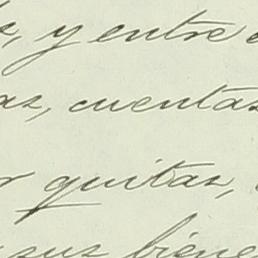 , y entre
as, cuentas
quitas,
sus biene